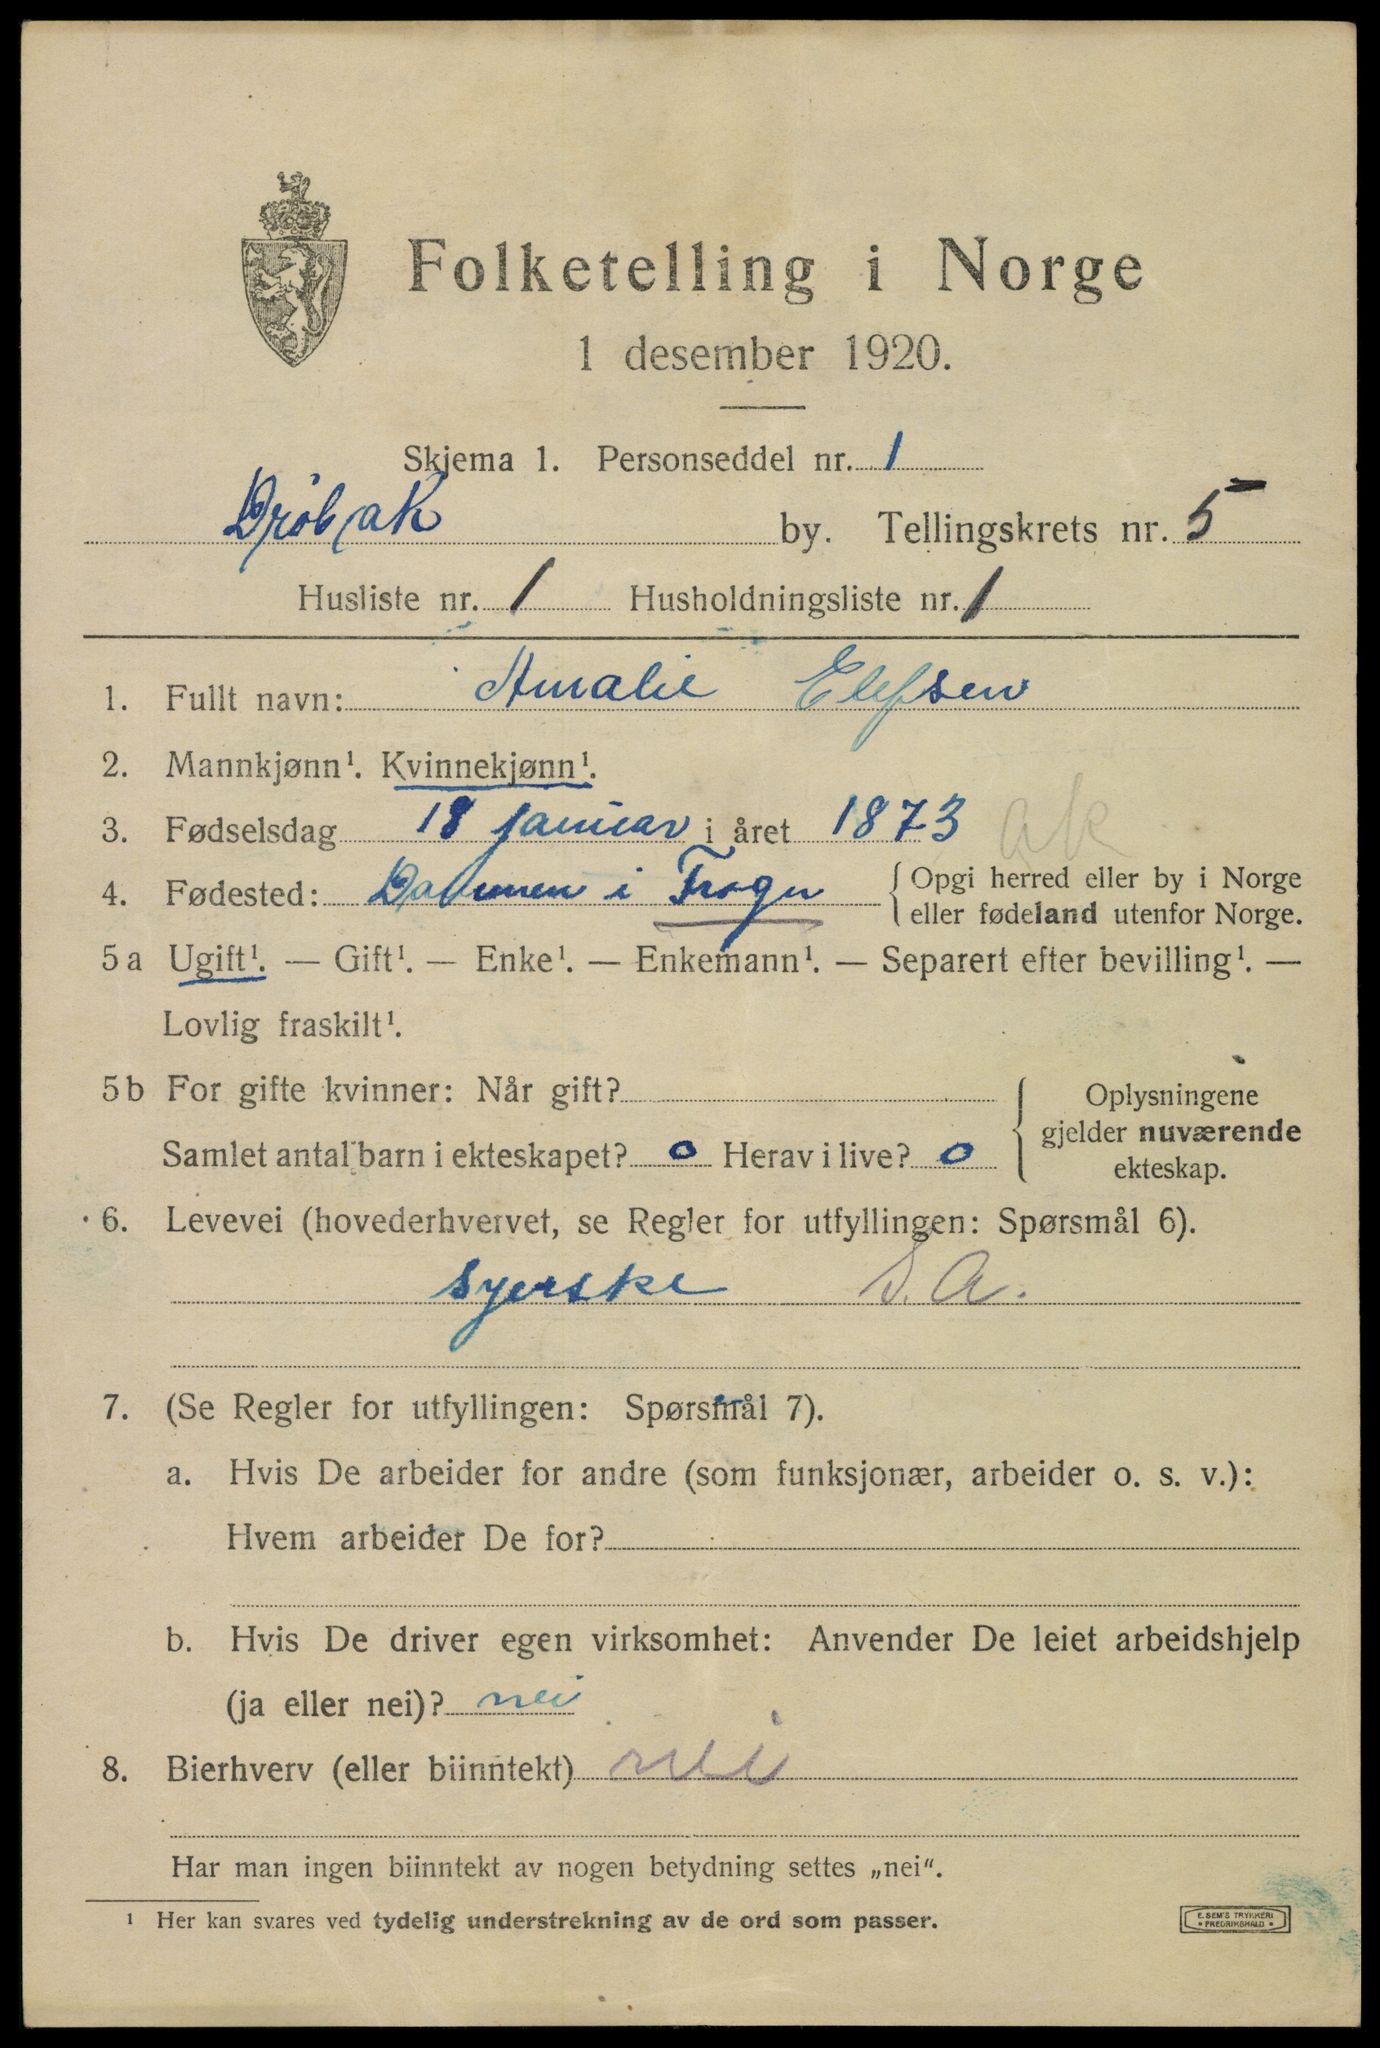 Folketelling i Norge
1 desember 1920.
Skjema 1. Personseddel nr. 1
Drøbak by. Tellingskrets nr. 5
Husliste nr. 1 Husholdningsliste nr. 1
1. Fullt navn: Amalie Elefsen
2. Mannkjønn¹. Kvinnekjønn¹.
3. Fødselsdag 18 januar i året 1873 ak
4. Fødested: i Frogn { Opgi herred eller by i Norge
eller fødeland utenfor Norge.
5a Ugift¹. — Gift¹. — Enke¹. — Enkemann¹. — Separert efter bevilling¹. —
Lovlig fraskilt¹.
5b For gifte kvinner: Når gift? { Oplysningene
gjelder nuværende
ekteskap.
Samlet antal barn i ekteskapet? 0 Herav i live? 0
6. Levevei (hovederhvervet, se Regler for utfyllingen: Spørsmål 6).
syerske S. A.
7. (Se Regler for utfyllingen: Spørsmål 7).
a. Hvis De arbeider for andre (som funksjonær, arbeider o. s. v.):
Hvem arbeider De for?
b. Hvis De driver egen virksomhet: Anvender De leiet arbeidshjelp
(ja eller nei)? nei
8. Bierhverv (eller biinntekt) nei
Har man ingen biinntekt av nogen betydning settes „nei“.
¹ Her kan svares ved tydelig understrekning av de ord som passer.
E. SEM'S TRYKKERI
• FREDRIKSHALD •